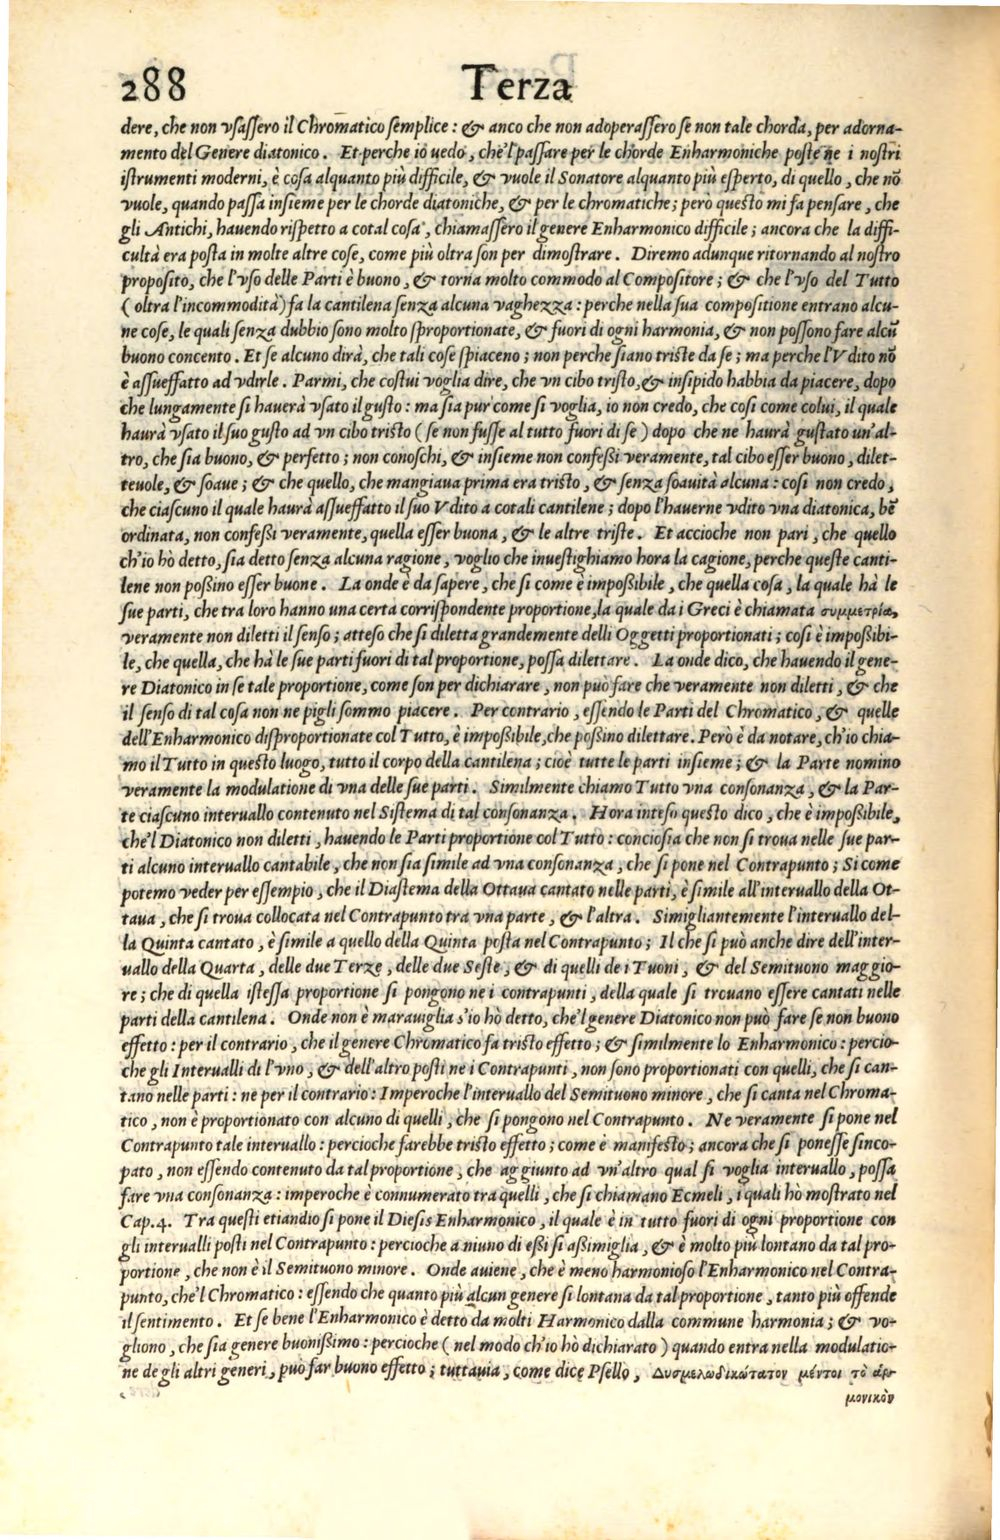 288 Terza
dere, che non vſaſſero il Chromatico ſemplice : & anco che non adoperaſſero ſe non tale chorda, per adorna-
mento del Genere diatonico . Et perche io uedo , che'l paſſare per le chorde Enharmoniche poſte ne i noſtri
iſtrumenti moderni, è coſa alquanto più difficile, & vuole il Sonatore alquanto più eſperto, di quello , che nō
vuole, quando paſſa inſieme per le chorde diatoniche, & per le chromatiche; però queſto mi fa penſare , che
gli Antichi, hauendo riſpetto a cotal coſa , chiamaſſero il genere Enharmonico difficile ; ancora che la diffi-
cultà era poſta in molte altre coſe, come più oltra ſon per dimoſtrare . Diremo adunque ritornando al noſtro
propoſito, che l'vſo delle Parti è buono , & torna molto commodo al Compoſitore ; & che l'vſo del Tutto
( oltra l'incommodità ) fa la cantilena ſenza alcuna vaghezza : perche nella ſua compoſitione entrano alcu-
ne coſe, le quali ſenza dubbio ſono molto ſproportionate, & fuori di ogni harmonia, & non poſſono fare alcū
buono concento . Et ſe alcuno dirà, che tali coſe ſpiaceno ; non perche ſiano triſte da ſe ; ma perche l'Vdito nō
è aſſueffatto ad vdirle . Parmi, che coſtui voglia dire, che vn cibo triſto, & inſipido habbia da piacere, dopo
che lungamente ſi hauerà vſato il guſto : ma ſia pur come ſi voglia, io non credo, che coſi come colui, il quale
haurà vſato il ſuo guſto ad vn cibo triſto ( ſe non fuſſe al tutto fuori di ſe ) dopo che ne haurà guſtato un'al-
tro, che ſia buono, & perfetto ; non conoſchi, & inſieme non confeßi veramente, tal cibo eſſer buono , dilet-
teuole, & ſoaue ; & che quello, che mangiaua prima era triſto , & ſenza ſoauità alcuna : coſi non credo ,
che ciaſcuno il quale haurà aſſueffatto il ſuo Vdito a cotali cantilene ; dopo l'hauerne vdito vna diatonica, bē
ordinata, non confeßi veramente, quella eſſer buona , & le altre triſte . Et accioche non pari , che quello
ch'io hò detto, ſia detto ſenza alcuna ragione , voglio che inueſtighiamo hora la cagione, perche queſte canti-
lene non poßino eſſer buone . La onde è da ſapere, che ſi come è impoßibile , che quella coſa , la quale hà le
ſue parti, che tra loro hanno una certa corriſpondente proportione, la quale da i Greci è chiamata συμμετρία,
veramente non diletti il ſenſo ; atteſo che ſi diletta grandemente delli Oggetti proportionati ; coſi è impoßibi-
le, che quella, che hà le ſue parti fuori di tal proportione, poſſa dilettare . La onde dico, che hauendo il gene-
re Diatonico in ſe tale proportione, come ſon per dichiarare , non può fare che veramente non diletti , & che
il ſenſo di tal coſa non ne pigli ſommo piacere . Per contrario , eſſendo le Parti del Chromatico , & quelle
dell'Enharmonico diſproportionate col Tutto, è impoßibile, che poßino dilettare. Però è da notare, ch'io chia-
mo il Tutto in queſto luogo, tutto il corpo della cantilena ; cioè tutte le parti inſieme ; & la Parte nomino
veramente la modulatione di vna delle ſue parti . Similmente chiamo Tutto vna conſonanza , & la Par-
te ciaſcuno interuallo contenuto nel Siſtema di tal conſonanza . Hora inteſo queſto dico , che è impoßibile,
che'l Diatonico non diletti , hauendo le Parti proportione col Tutto : concioſia che non ſi troua nelle ſue par-
ti alcuno interuallo cantabile , che non ſia ſimile ad vna conſonanza , che ſi pone nel Contrapunto ; Si come
potemo veder per eſſempio , che il Diaſtema della Ottaua cantato nelle parti, è ſimile all'interuallo della Ot-
taua , che ſi troua collocata nel Contrapunto tra vna parte , & l'altra . Simigliantemente l'interuallo del-
la Quinta cantato , è ſimile a quello della Quinta poſta nel Contrapunto ; Il che ſi può anche dire dell'inter-
uallo della Quarta , delle due Terze , delle due Seſte , & di quelli de i Tuoni , & del Semituono maggio-
re ; che di quella iſteſſa proportione ſi pongono ne i contrapunti , della quale ſi trouano eſſere cantati nelle
parti della cantilena . Onde non è marauiglia s'io hò detto, che'l genere Diatonico non può fare ſe non buono
effetto : per il contrario , che il genere Chromatico fa triſto effetto ; & ſimilmente lo Enharmonico : percio-
che gli Interualli di l'vno , & dell'altro poſti ne i Contrapunti , non ſono proportionati con quelli, che ſi can-
tano nelle parti : ne per il contrario : Imperoche l'interuallo del Semituono minore , che ſi canta nel Chroma-
tico , non è proportionato con alcuno di quelli , che ſi pongono nel Contrapunto . Ne veramente ſi pone nel
Contrapunto tale interuallo : percioche farebbe triſto effetto ; come è manifeſto ; ancora che ſi poneſſe ſinco-
pato , non eſſendo contenuto da tal proportione , che aggiunto ad vn'altro qual ſi voglia interuallo , poſſa
fare vna conſonanza : imperoche è connumerato tra quelli , che ſi chiamano Ecmeli , i quali hò moſtrato nel
Cap. 4. Tra queſti etiandio ſi pone il Dieſis Enharmonico , il quale è in tutto fuori di ogni proportione con
gli interualli poſti nel Contrapunto : percioche a niuno di eßi ſi aßimiglia , & è molto più lontano da tal pro-
portione , che non è il Semituono minore . Onde auiene , che è meno harmonioſo l'Enharmonico nel Contra-
punto, che'l Chromatico : eſſendo che quanto più alcun genere ſi lontana da tal proportione , tanto più offende
il ſentimento . Et ſe bene l'Enharmonico è detto da molti Harmonico dalla commune harmonia ; & vo-
gliono , che ſia genere buonißimo : percioche ( nel modo ch'io hò dichiarato ) quando entra nella modulatio-
ne de gli altri generi , può far buono effetto ; tuttauia , come dice Pſello , Δυσμελωδικώτατον μέντοι τὸ ἁρ-
μονικὸν